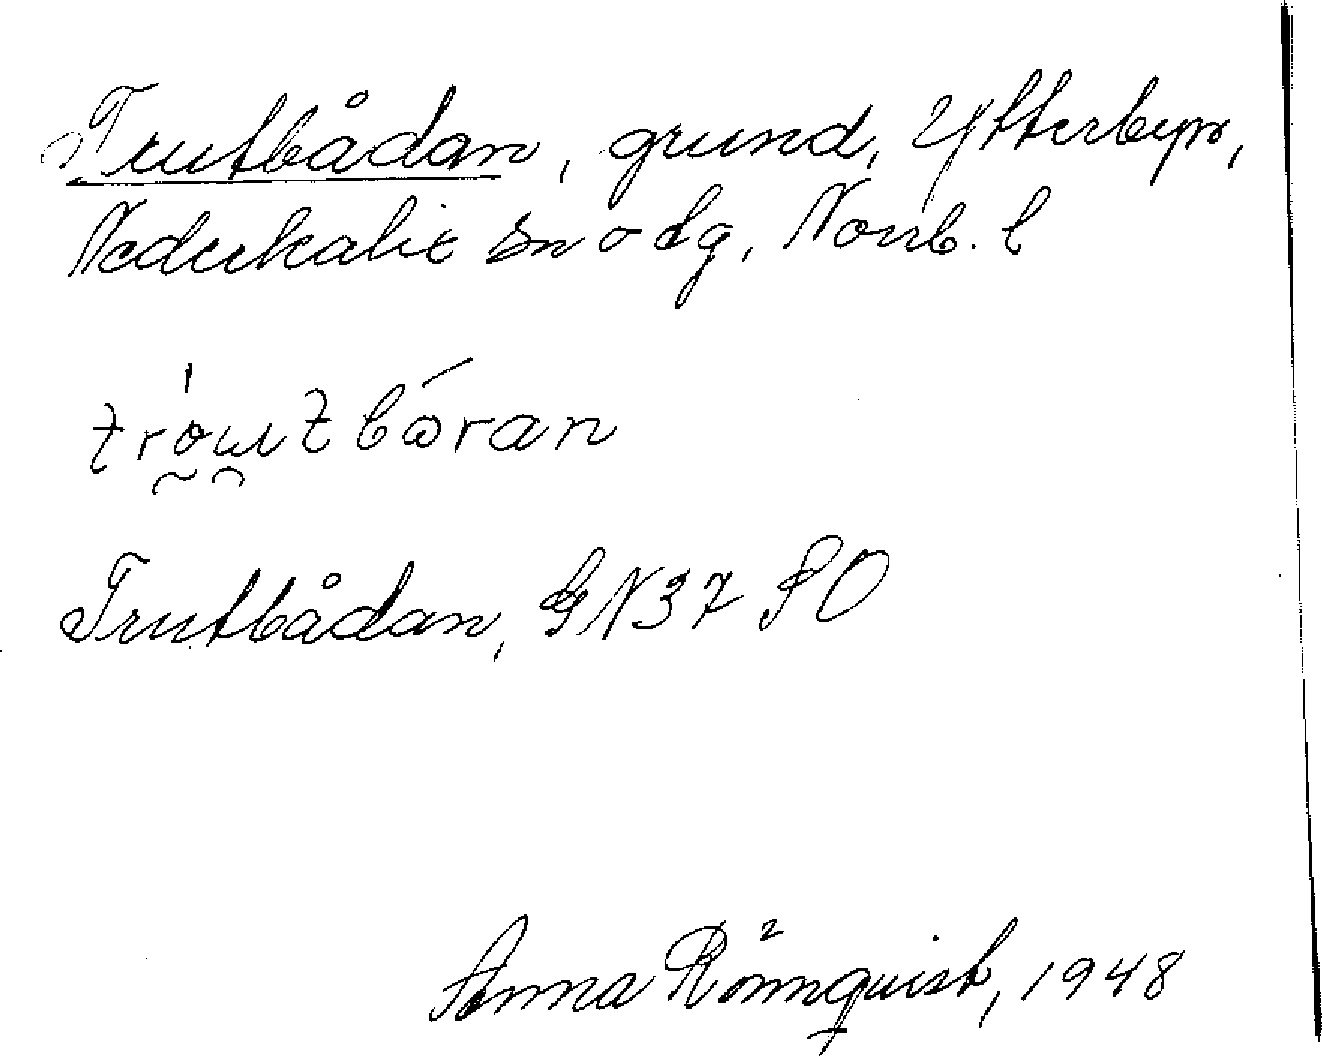 Trutbådan, grund, Ytterbyn,
Nederkalix sn o dg, Norrb. l
Trutbådan, GN37 SO
Anna Rönnquist, 1948